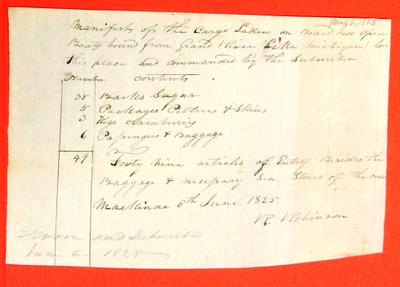 June 6, 1825
Manifest of the Cargo taken on Board two open
Boats bound from Grand River Lake Michigan to
this place and commanded by the Subscriber
Number contents
35 Barks Sugar
5 Packages Peltries & Skins
3 Kegs
6 Passingers & Baggage
49 Forty nine articles of Entry Besides the
Baggage & necessary Sea Stores of the
Mackinac 6th June 1825
R. Robinson
Sworn and Subscribed
June 6 - 1825